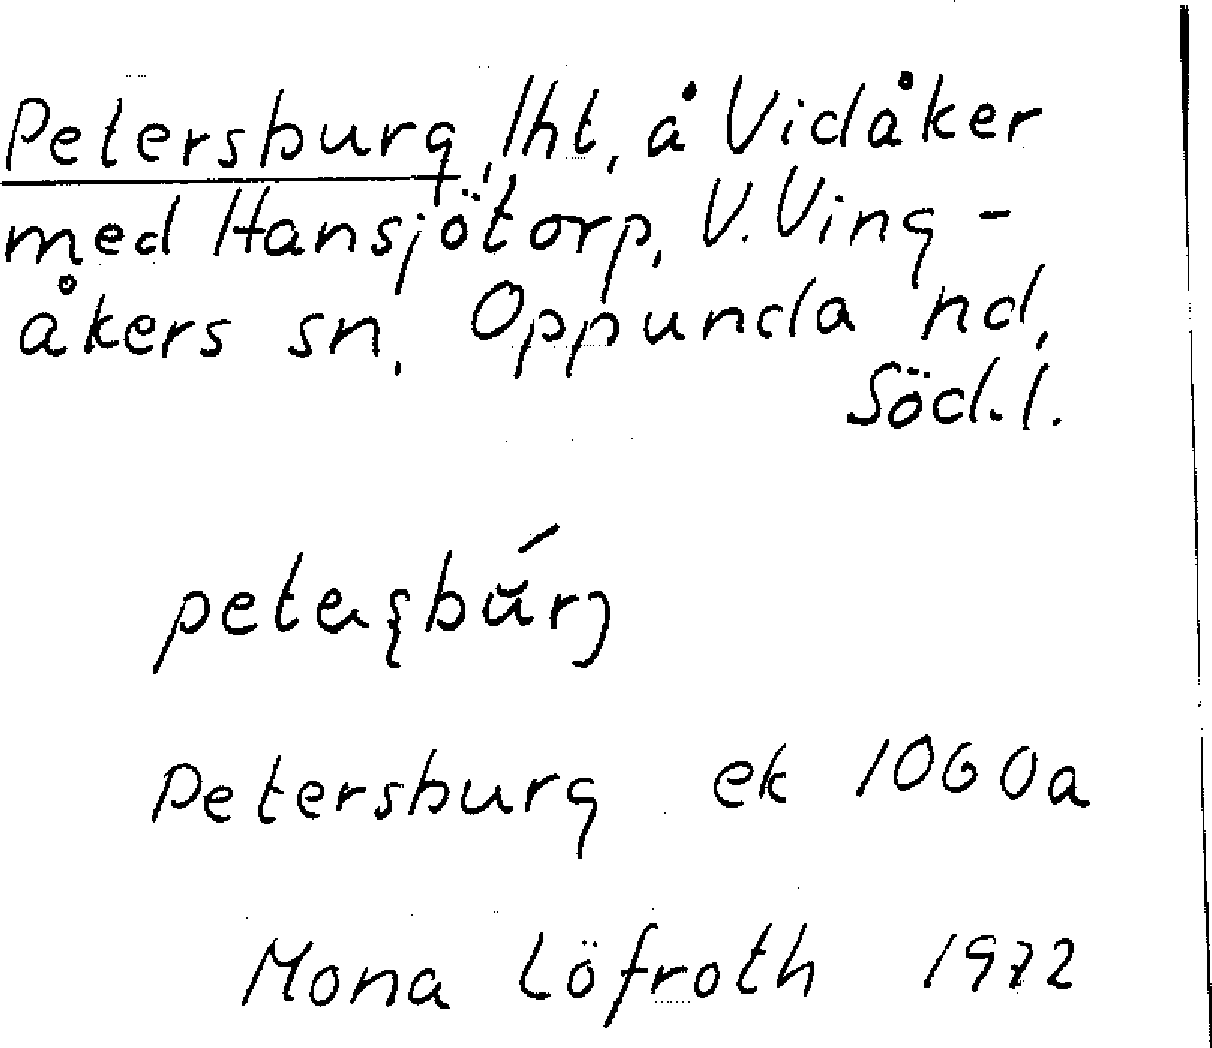 Petersburg, lht, å Vidåker
med Hansjötorp, V. Ving-
åkers sn, Oppunda hd,
Söd.l.
Petersburg ek 1060a
Mona Löfroth 1972